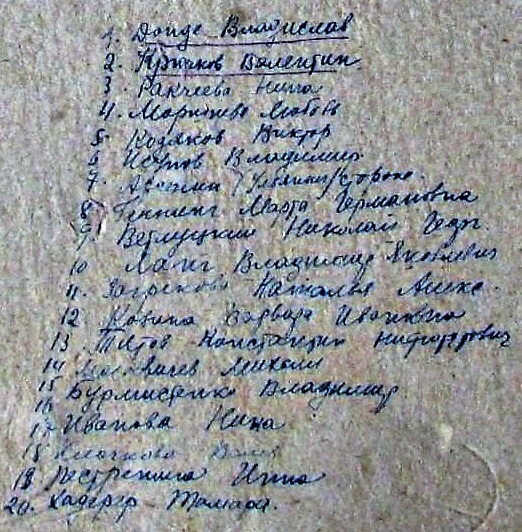 1. Донде Владислав
2. Крючков Валентин
3 Ракчеева Нина
4. Мартынова Любовь
5. Козяков Виктор
6 Исупов Владимир
7.
8 Геннинг Марта Германовна
9 Ветлуцкий Николай Георг.
10 Ланг Владимир Яковлевич
11. Загрекова Наталья Алекс.
12 Ковина Варвара Ивановна
13. Титов Константин Никифорович
14 Москвичев Михаил
15 Бурмистенко Владимир
16
17 Иванова Нина
18 Клочкова Валя
19 Нестренина Инна
20. Хадерер Тамара.